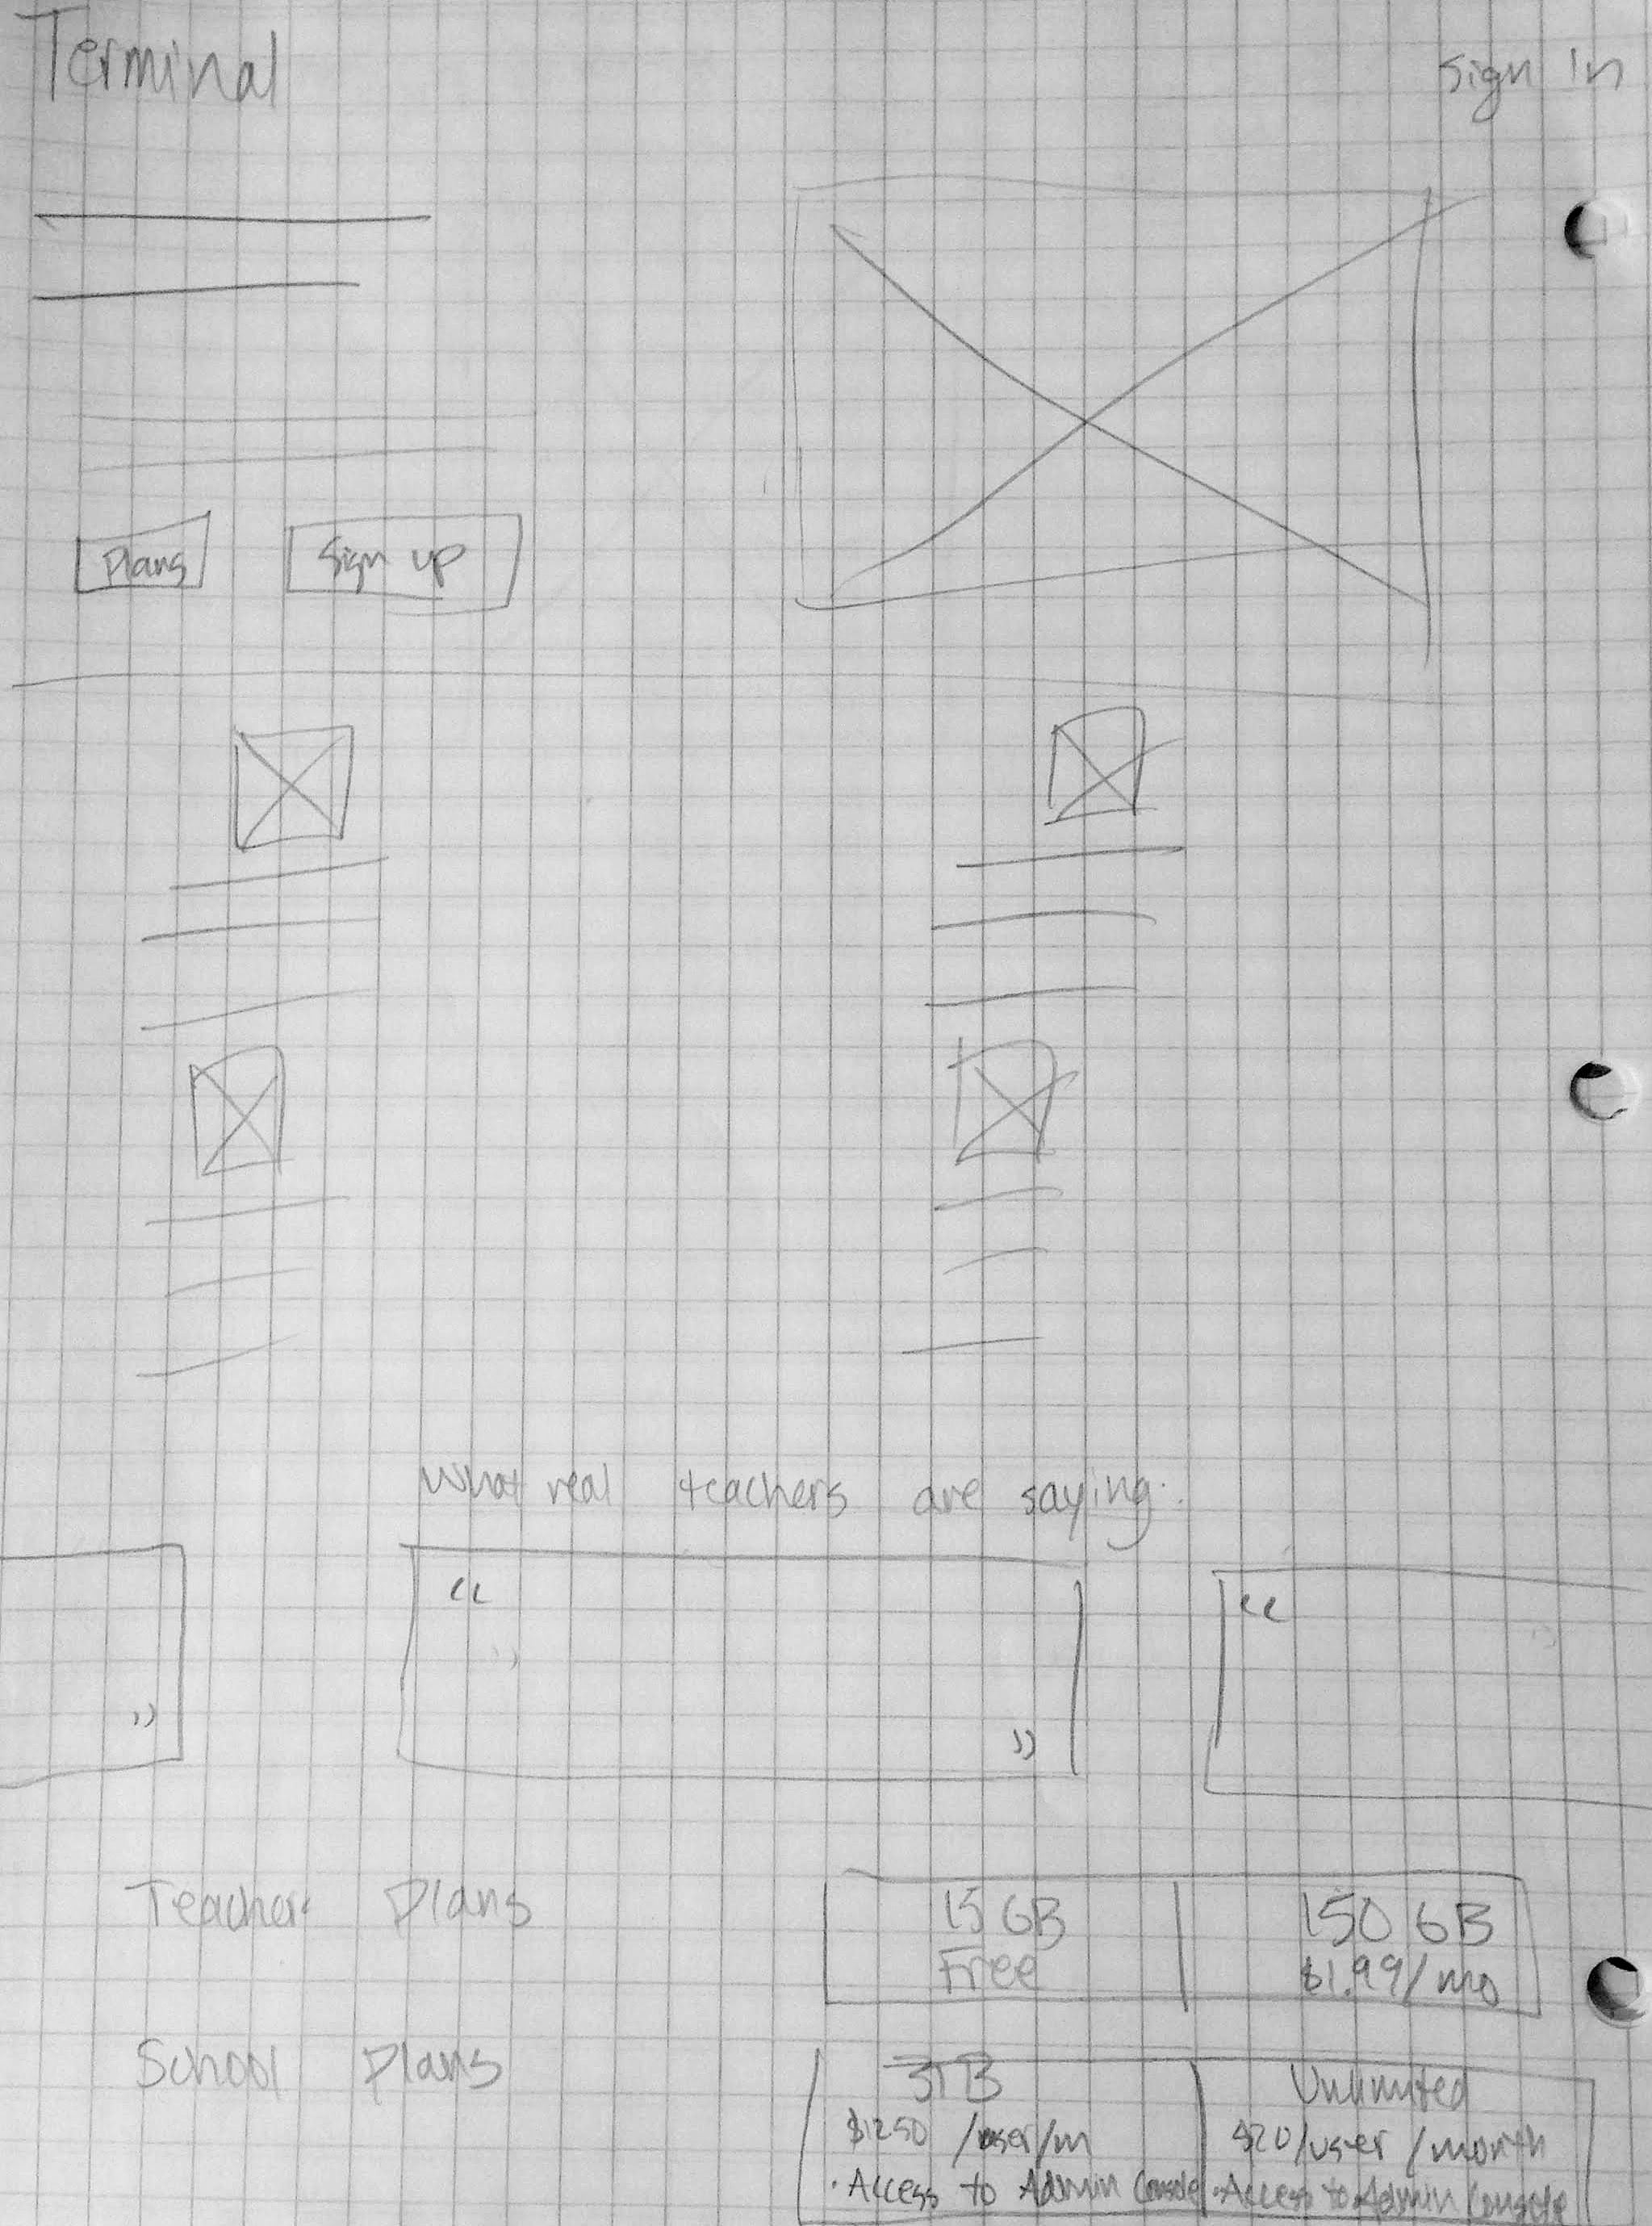 Terminal
Sign In
Plans
Sign up
What real teachers are saying:
“
”
“
”
Teacher Plans
15 GB
Free
150 GB
$1.99/mo
School Plans
3TB
$1250 /user/m
· Access to Admin Console
Unlimited
$20/user/month
· Access to Admin Console